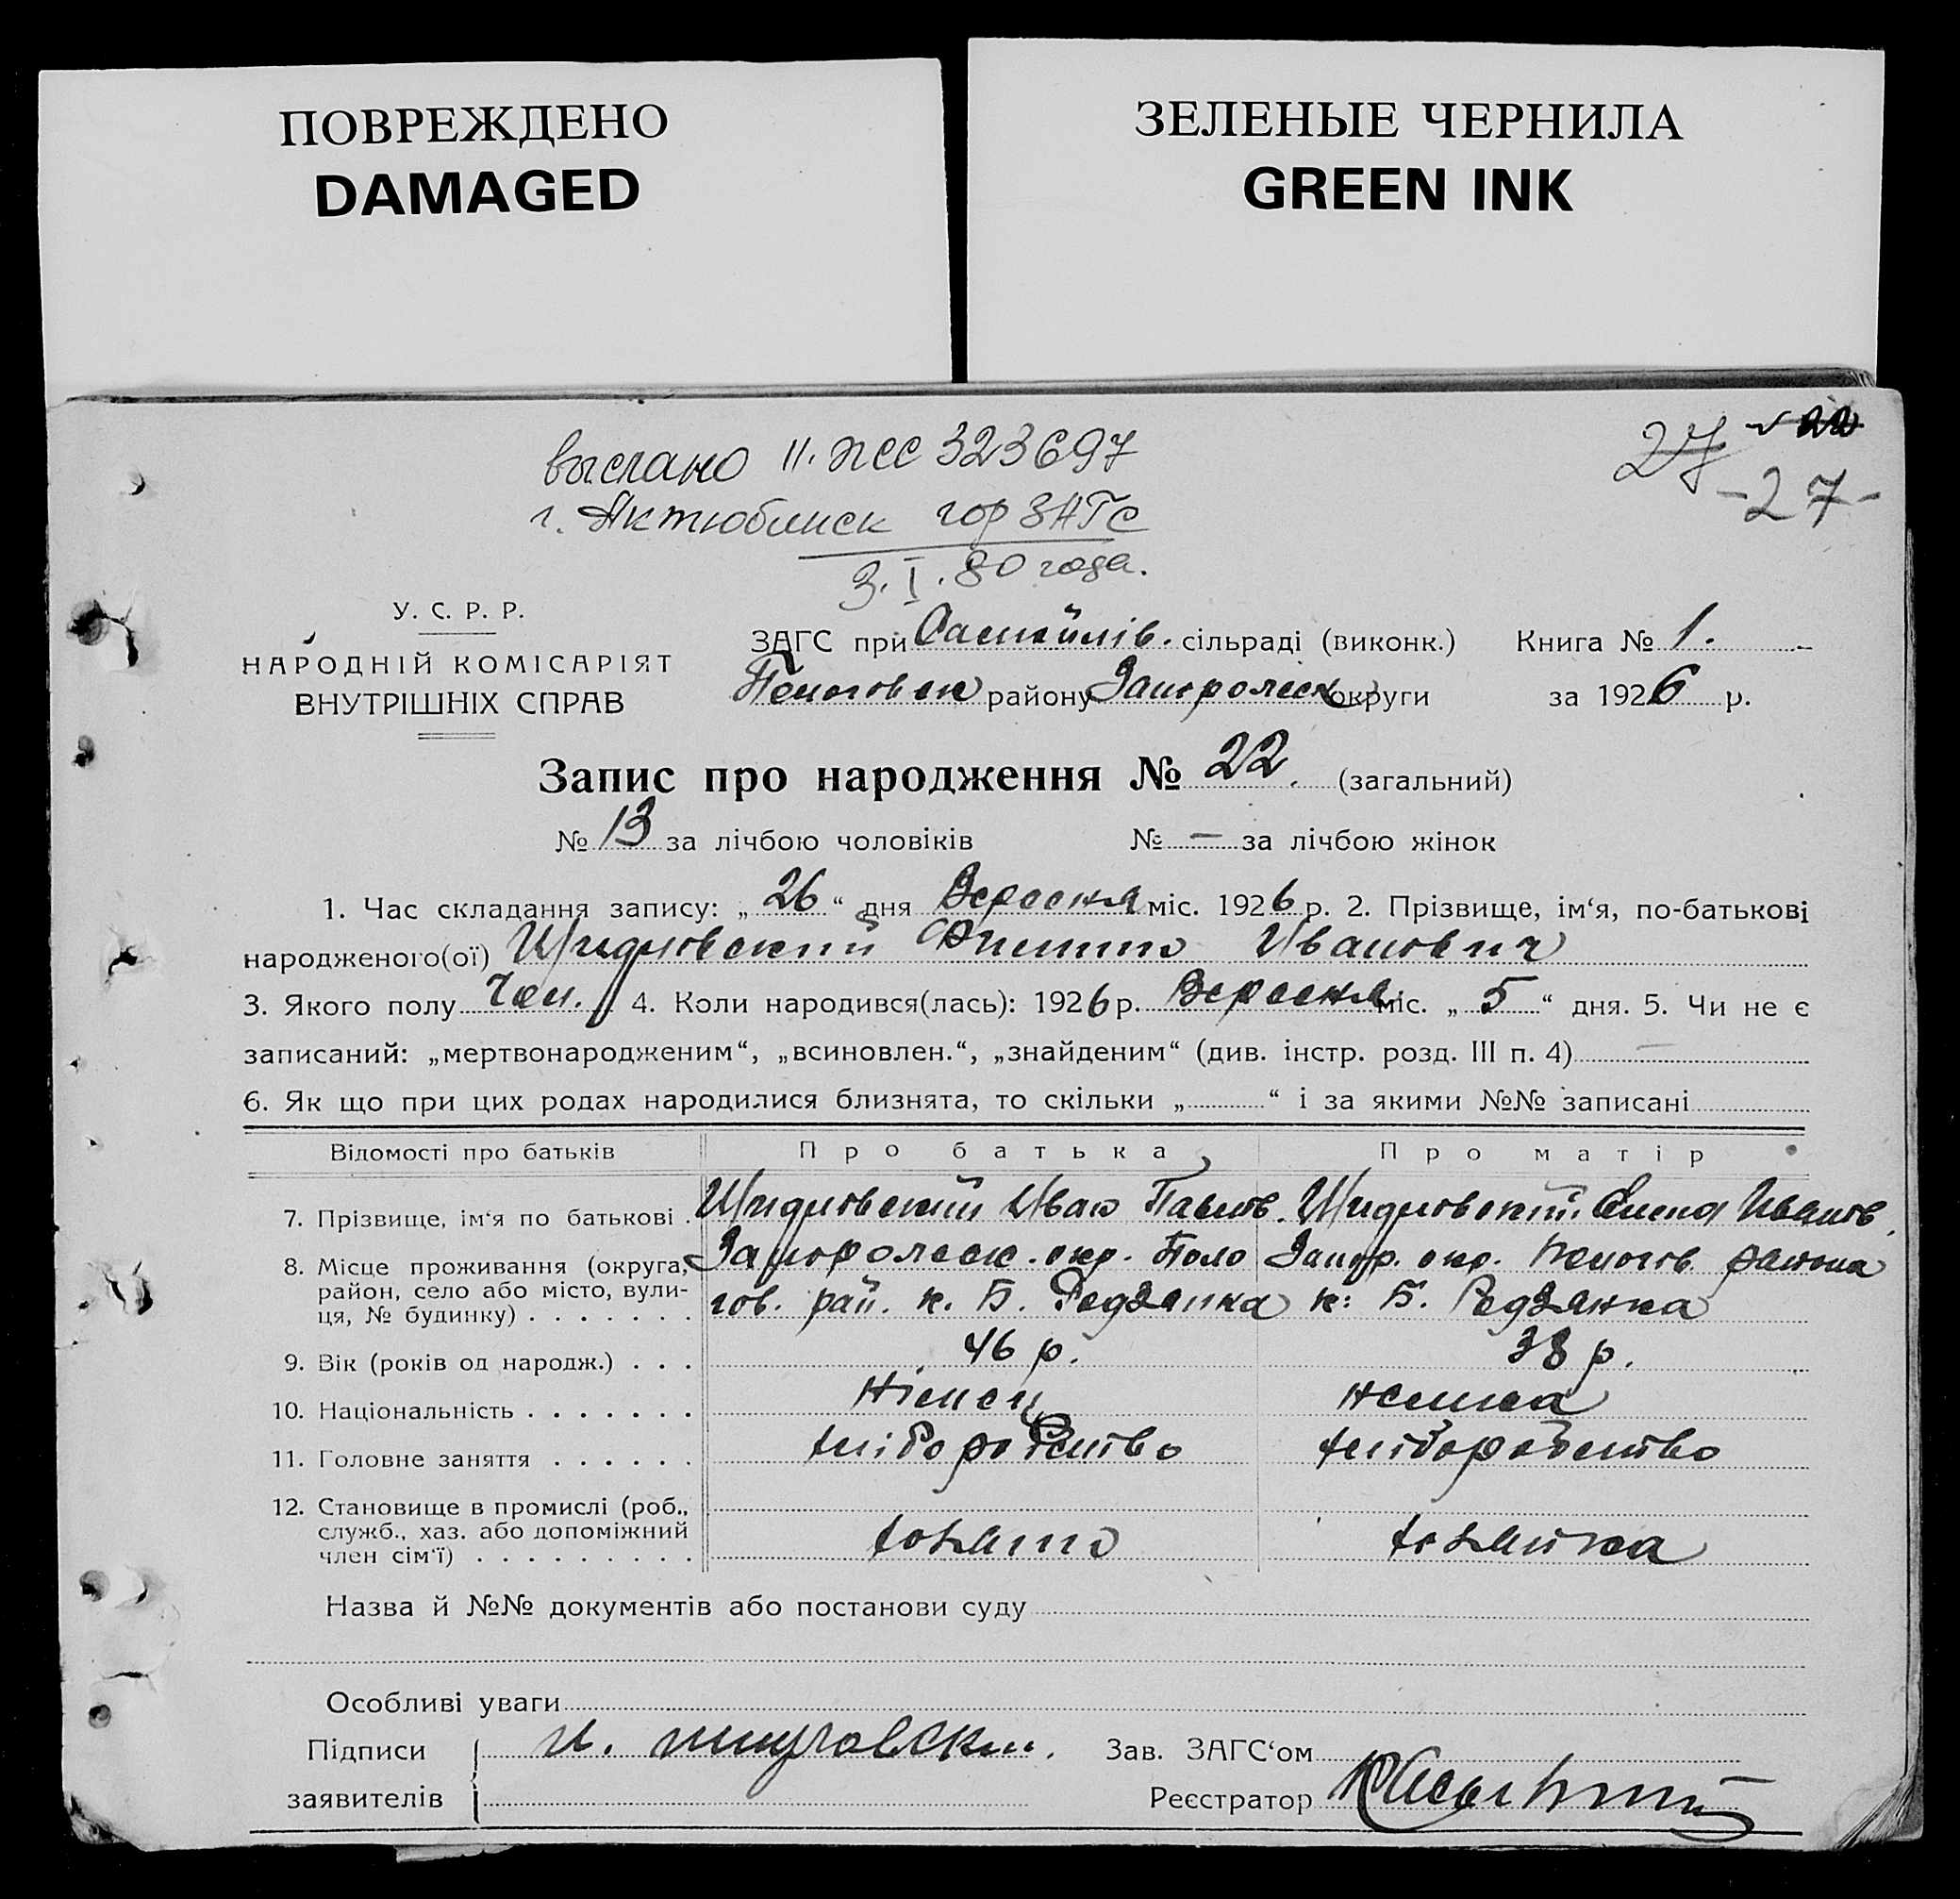 ПОВРЕЖДЕНО
DAMAGED
ЗЕЛЕНЫЕ ЧЕРНИЛА
GREEN INK
выслано II. ЖС 323697
г. Актюбинск гор ЗАГС
3. I. 80 года.
27 22
-27-
У. С. Р. Р.
НАРОДНІЙ КОМІСАРІЯТ
ВНУТРІШНІХ СПРАВ
ЗАГС при Самойлів. сільраді (виконк.) Книга № 1.
Пологовск району Запорожск округи за 1926 р.
Запис про народження № 22. (загальний)
№ 13 за лічбою чоловіків № — за лічбою жінок
1. Час складання запису: „ 26 “ дня Вересня міс. 1926 р. 2. Прізвище, ім‘я, по-батькові
народженого(ої) Шидловский Филипп Иванович
3. Якого полу Чол. 4. Коли народився(лась): 1926 р. Вересня міс. „ 5 “ дня. 5. Чи не є
записаний: „мертвонародженим“, „всиновлен.“, „знайденим“ (див. інстр. розд. III п. 4) —
6. Як що при цих родах народилися близнята, то скільки „ “ і за якими №№ записані
Відомості про батьків Про батька Про матір
7. Прізвище, ім‘я по батькові . Шидловский Иван Павлов. Шидловский. Елена Иванов.
8. Місце проживання (округа, Запорожск. окр. Поло Запор. окр. Пологов. района
район, село або місто, вули- гов. рай. к. Б. Редзянка к. Б. Редзянка
ця, № будинку) . . . . . . .
9. Вік (років од народж.) . . . 46 р. 38 р.
10. Національність . . . . . . . німец немка
11. Головне заняття . . . . . . хліборобство хліборобство
12. Становище в промислі (роб.,
служб., хаз. або допоміжний
член сім‘ї) . . . . . . . . . хозяин хозяйка
Назва й №№ документів або постанови суду
Особливі уваги
Підписи И. Шидловский. Зав. ЗАГС‘ом
заявителів Реєстратор